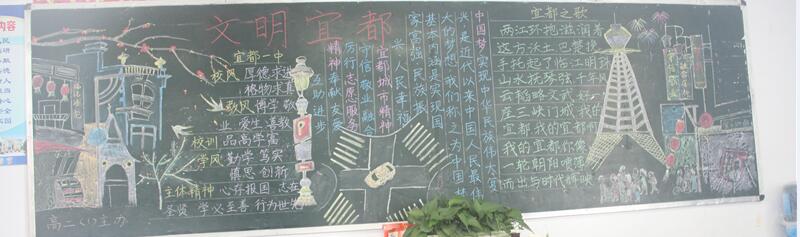 文明宜都
宜都一中
校风 厚德求进
格物求真
教风 博学 敬
业 爱生 善教
校训 品高学富
学风 勤学 笃实
慎思 创新
主体精神 心存报国 志在
圣贤 学必至善 行为世先
高二(1)主办
宜都城市精神
厉行志愿服务
守信 敬业 融合
精神 奉献 友爱
互助 进步
中国梦,实现中华民族伟大复
兴,是近代以来中国人民最伟
大的梦想,我们称之为中国梦
基本内涵是实现国
家富强 民族振
兴 人民幸福
宜都之歌
两江环抱滋润着
这方沃土 巴楚
手托起了临江明珠
山水抚琴弦 千年
云稻略文武 好
座三峡门城 我的
宜都 我的宜都
我的宜都你像
一轮朝阳喷薄
而出与时代辉映
内容